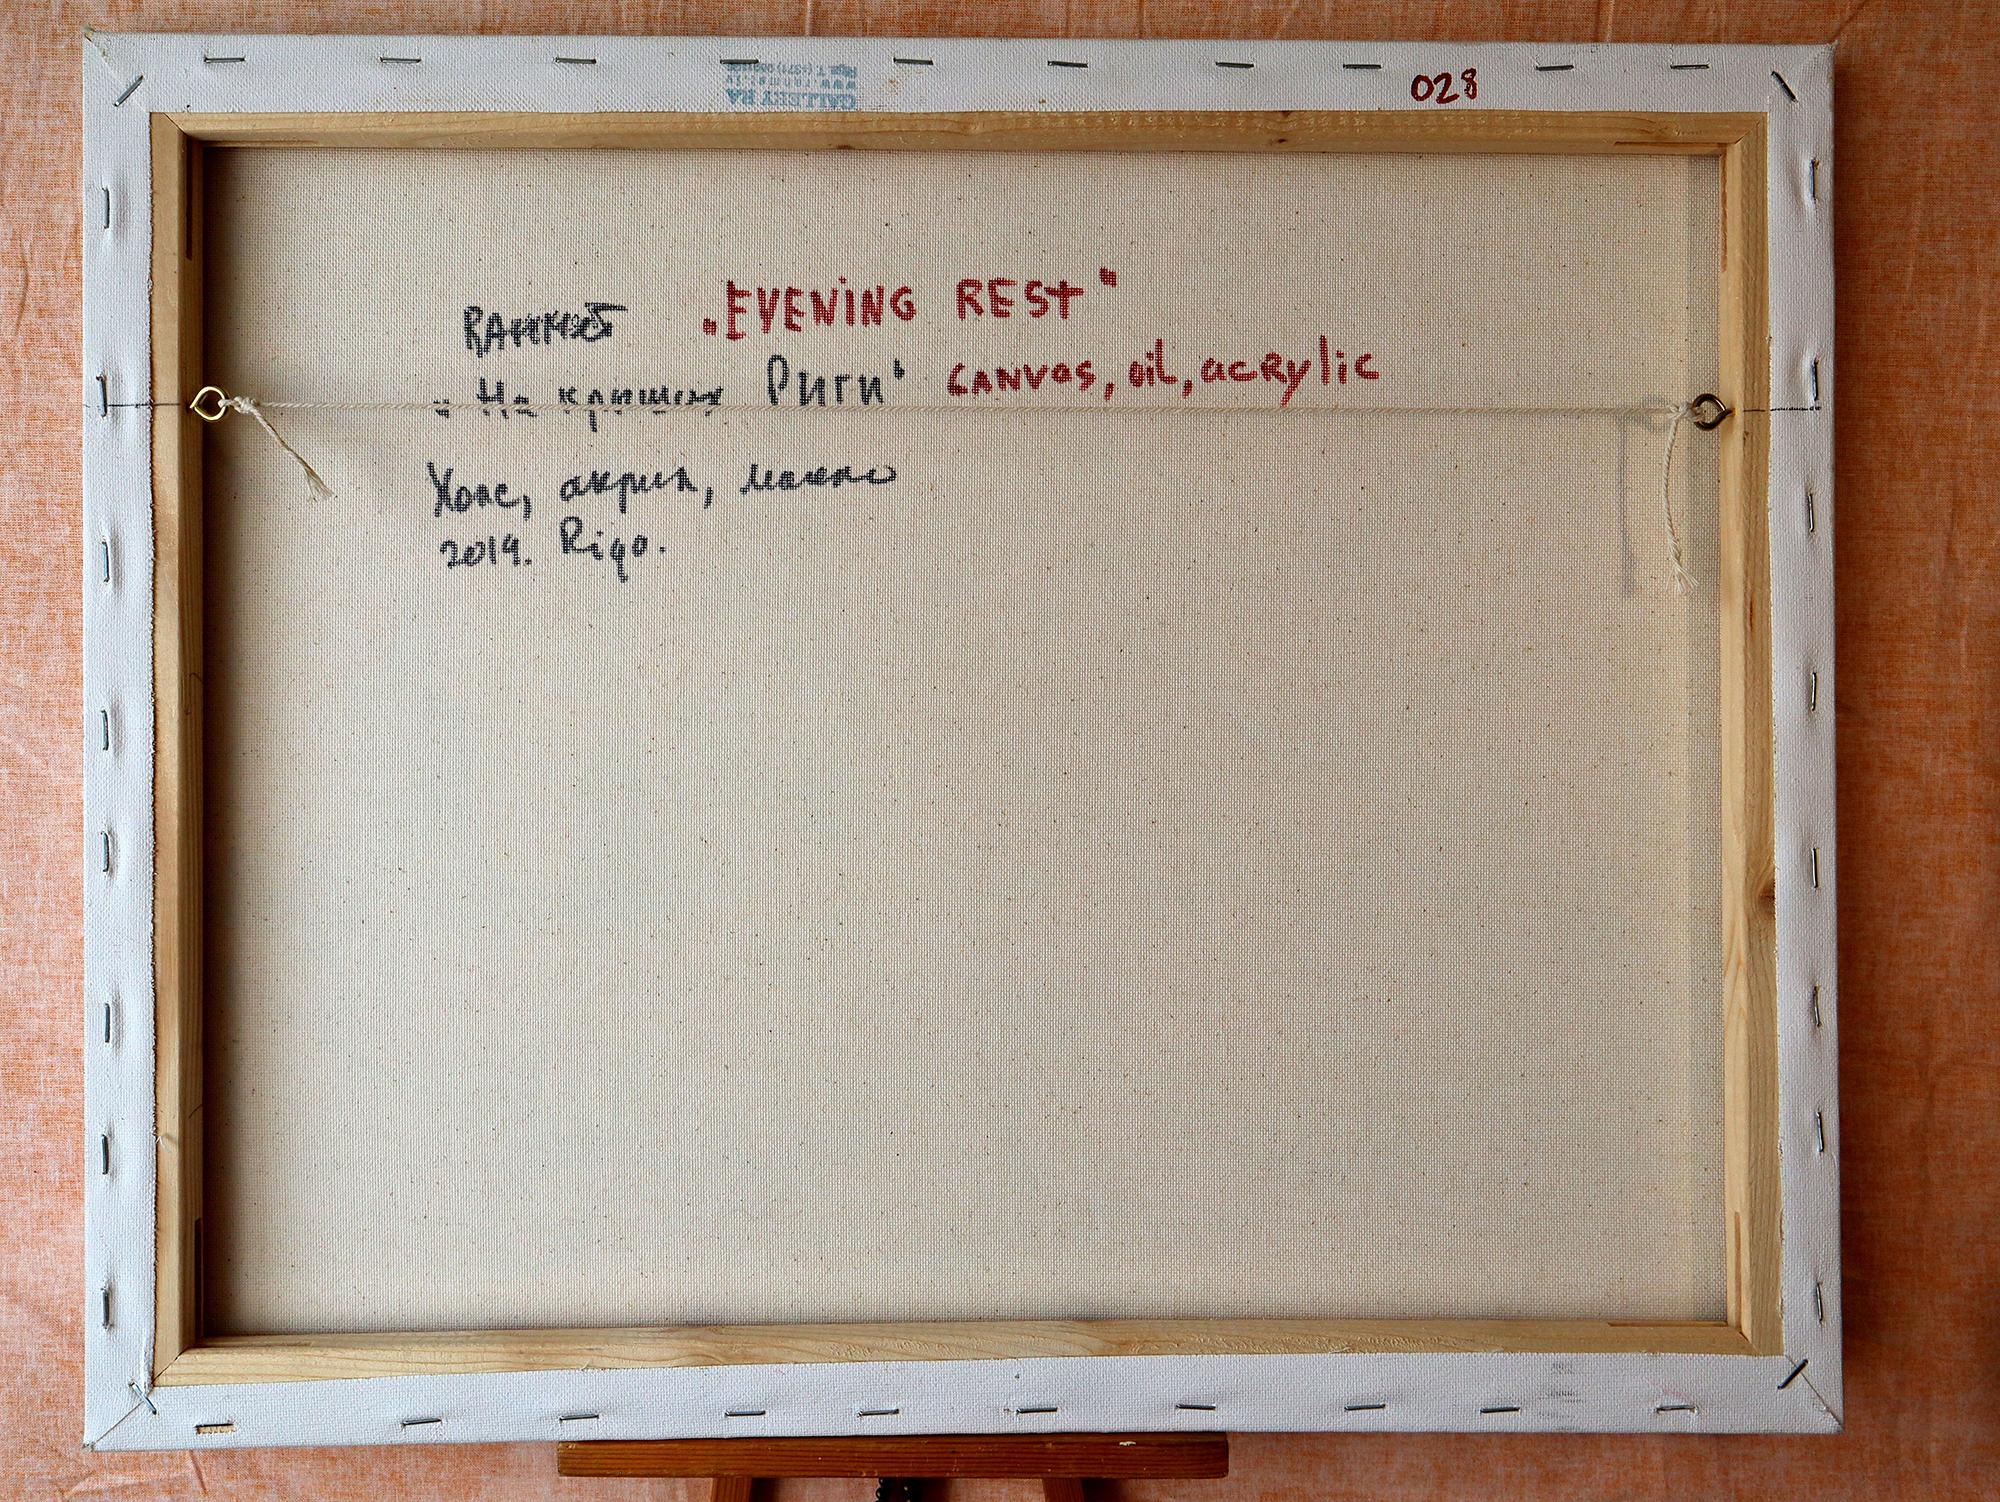 028
GALLERY RA
„EVENING REST"
"На крышах Риги" CANVAS, oil, acrylic
Холс, акрил, масло
2019. Riga.